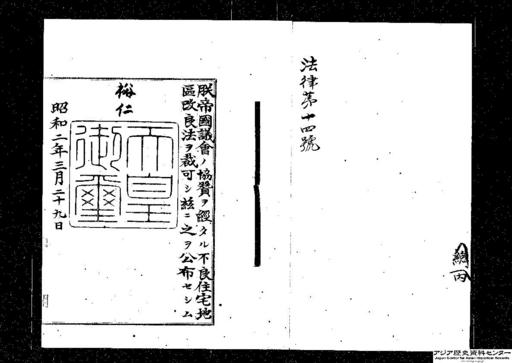 法律第十四號
朕帝國議會ノ協贊ヲ經タル不良住宅地
區改良法ヲ裁可シ茲ニ之ヲ公布セシム
裕仁
天皇
御璽
昭和二年三月二十九日
丙
アジア歴史資料センター
Japan Center for Asian Historical Records